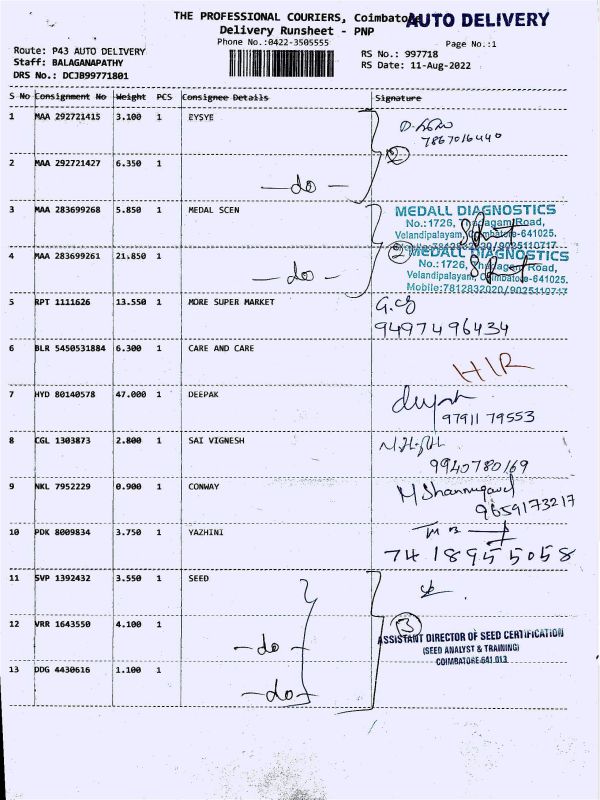 THE PROFESSIONAL COURIERS, Coimbatore AUTO DELIVERY
Delivery Runsheet - PNP
Phone No.:0422-3505555
Page No.:1
Route: P43 AUTO DELIVERY
RS No.: 997718
Staff: BALAGANAPATHY
RS Date: 11-Aug-2022
DRS No.: DCJB99771801
S No Consignment No Weight PCS Consignee Details Signature
1 MAA 292721415 3.100 1 EYSYE
7867016440
2 MAA 292721427 6.350 1
2
-do-
3 MAA 283699268 5.850 1 MEDAL SCEN
MEDALL DIAGNOSTICS
No.:1726, Road,
Velandipalayam, Coimbatore-641025.
7812832020/9025110717
4 MAA 283699261 21.850 1
-do-
2
MEDALL DIAGNOSTICS
No.:1726, Road,
Velandipalayam, Coimbatore-641025.
Mobile:7812832020/9025110717
5 RPT 1111626 13.550 1 MORE SUPER MARKET
9497496434
6 BLR 5450531884 6.300 1 CARE AND CARE
HIR
7 HYD 80140578 47.000 1 DEEPAK
9791179553
8 CGL 1303873 2.800 1 SAI VIGNESH
9940780169
9 NKL 7952229 0.900 1 CONWAY
9659173217
10 PDK 8009834 3.750 1 YAZHINI
7418955058
11 SVP 1392432 3.550 1 SEED
12 VRR 1643550 4.100 1
-do-
3
ASSISTANT DIRECTOR OF SEED CERTIFICATION
(SEED ANALYST & TRAINING)
COIMBATORE-641 013
13 DDG 4430616 1.100 1
-do-